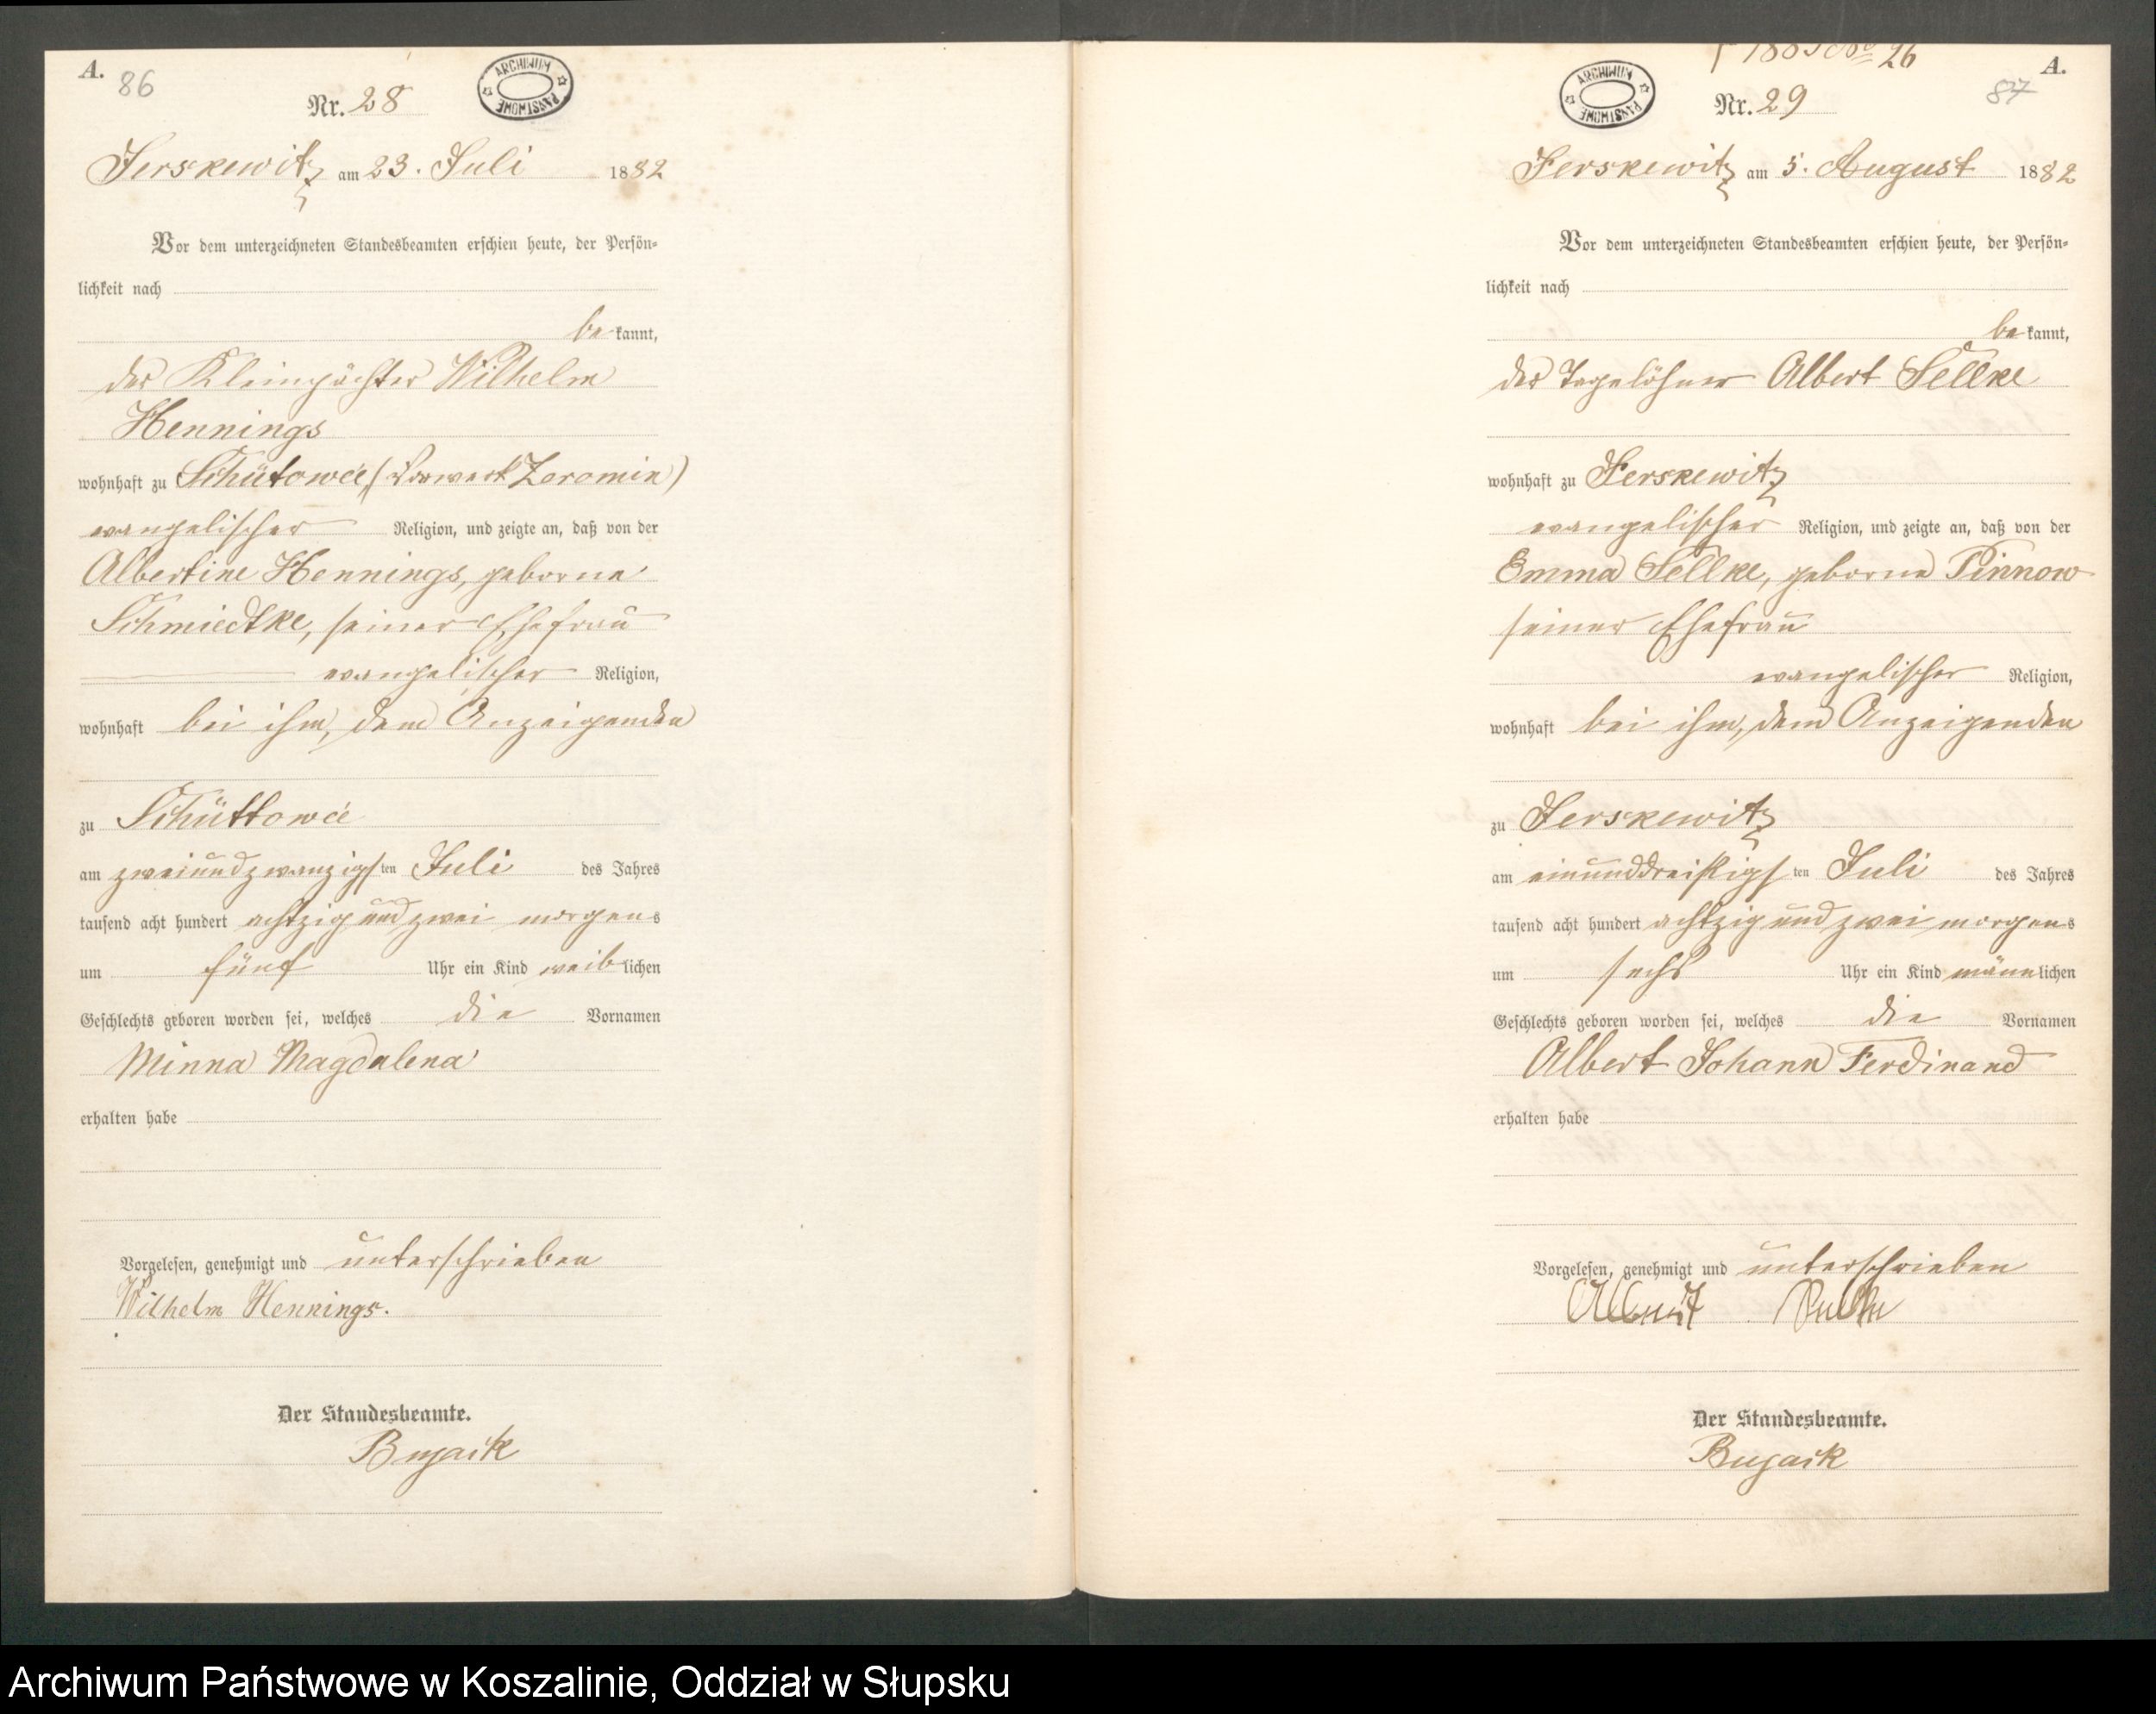 A.
86
ARCHIWUM PAŃSTWOWE
Nr. 28
Jerskewitz am 23. Juli 1882
Vor dem unterzeichneten Standesbeamten erschien heute, der Persön-
lichkeit nach
bekannt,
der Kleinpächter Wilhelm
Hennings
wohnhaft zu (Vorwerk Zeromin)
evangelischer Religion, und zeigte an, daß von der
Albertine Hennings, geborne
Schmiedtke, seiner Ehefrau
evangelischer Religion,
wohnhaft bei ihm, dem Anzeigenden
zu
am zweiundzwanzigsten Juli des Jahres
tausend acht hundert achtzig und zwei morgens
um fünf Uhr ein Kind weiblichen
Geschlechts geboren worden sei, welches die Vornamen
Minna Magdalena
erhalten habe
Vorgelesen, genehmigt und unterschrieben
Wilhelm Hennings.
Der Standesbeamte.
26
A.
87
ARCHIWUM PAŃSTWOWE
Nr. 29
Jerskewitz am 5. August 1882
Vor dem unterzeichneten Standesbeamten erschien heute, der Persön-
lichkeit nach
bekannt,
der Tagelöhner Albert Sellke
wohnhaft zu Jerskewitz
evangelischer Religion, und zeigte an, daß von der
Emma Sellke, geborne Pinnow
seiner Ehefrau
evangelischer Religion,
wohnhaft bei ihm, dem Anzeigenden
zu Jerskewitz
am einunddreißigsten Juli des Jahres
tausend acht hundert achtzig und zwei morgens
um sechs Uhr ein Kind männlichen
Geschlechts geboren worden sei, welches die Vornamen
Albert Johann Ferdinand
erhalten habe
Vorgelesen, genehmigt und unterschrieben
Albert Sellke
Der Standesbeamte.
Archiwum Państwowe w Koszalinie, Oddział w Słupsku